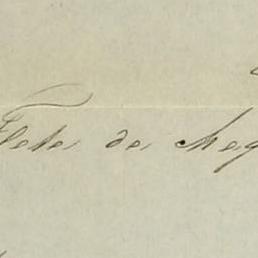 Flete de Neg